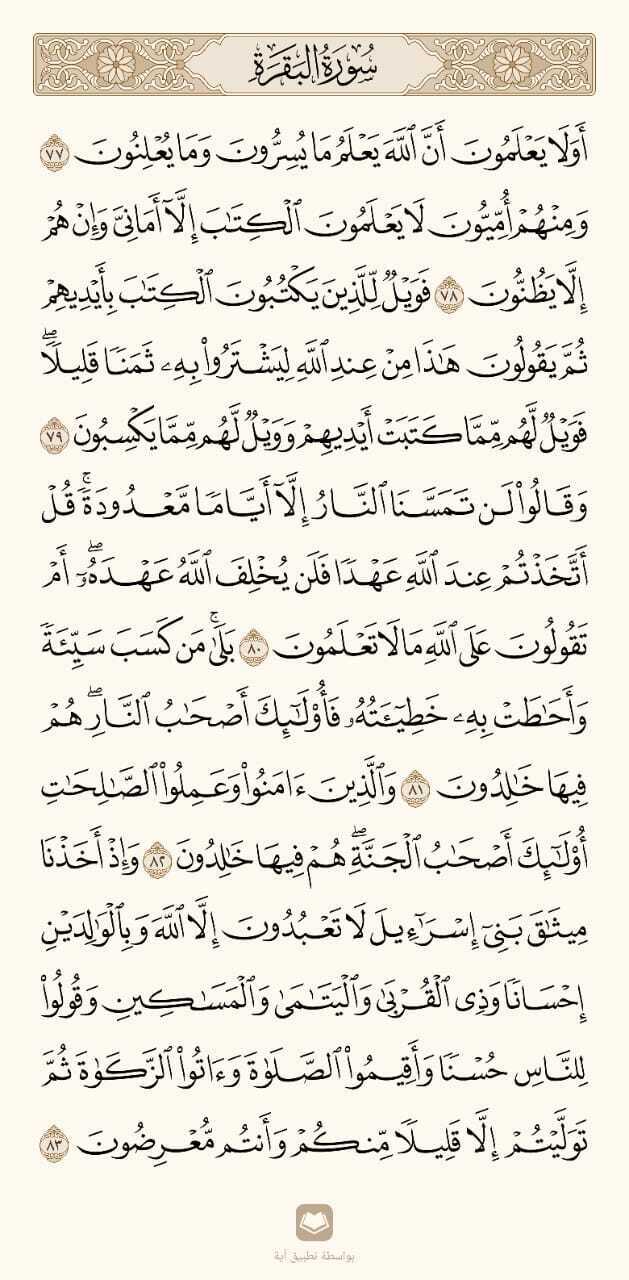 سُورَةُ البَقَرَةِ
أَوَلَا يَعۡلَمُونَ أَنَّ ٱللَّهَ يَعۡلَمُ مَا يُسِرُّونَ وَمَا يُعۡلِنُونَ ٧٧
وَمِنۡهُمۡ أُمِّيُّونَ لَا يَعۡلَمُونَ ٱلۡكِتَٰبَ إِلَّآ أَمَانِيَّ وَإِنۡ هُمۡ
إِلَّا يَظُنُّونَ ٧٨ فَوَيۡلٞ لِّلَّذِينَ يَكۡتُبُونَ ٱلۡكِتَٰبَ بِأَيۡدِيهِمۡ
ثُمَّ يَقُولُونَ هَٰذَا مِنۡ عِندِ ٱللَّهِ لِيَشۡتَرُواْ بِهِۦ ثَمَنٗا قَلِيلٗاۖ
فَوَيۡلٞ لَّهُم مِّمَّا كَتَبَتۡ أَيۡدِيهِمۡ وَوَيۡلٞ لَّهُم مِّمَّا يَكۡسِبُونَ ٧٩
وَقَالُواْ لَن تَمَسَّنَا ٱلنَّارُ إِلَّآ أَيَّامٗا مَّعۡدُودَةٗۚ قُلۡ
أَتَّخَذۡتُمۡ عِندَ ٱللَّهِ عَهۡدٗا فَلَن يُخۡلِفَ ٱللَّهُ عَهۡدَهُۥٓۖ أَمۡ
تَقُولُونَ عَلَى ٱللَّهِ مَا لَا تَعۡلَمُونَ ٨٠ بَلَىٰۚ مَن كَسَبَ سَيِّئَةٗ
وَأَحَٰطَتۡ بِهِۦ خَطِيٓـَٔتُهُۥ فَأُوْلَٰٓئِكَ أَصۡحَٰبُ ٱلنَّارِۖ هُمۡ
فِيهَا خَٰلِدُونَ ٨١ وَٱلَّذِينَ ءَامَنُواْ وَعَمِلُواْ ٱلصَّٰلِحَٰتِ
أُوْلَٰٓئِكَ أَصۡحَٰبُ ٱلۡجَنَّةِۖ هُمۡ فِيهَا خَٰلِدُونَ ٨٢ وَإِذۡ أَخَذۡنَا
مِيثَٰقَ بَنِيٓ إِسۡرَٰٓءِيلَ لَا تَعۡبُدُونَ إِلَّا ٱللَّهَ وَبِٱلۡوَٰلِدَيۡنِ
إِحۡسَانٗا وَذِي ٱلۡقُرۡبَىٰ وَٱلۡيَتَٰمَىٰ وَٱلۡمَسَٰكِينِ وَقُولُواْ
لِلنَّاسِ حُسۡنٗا وَأَقِيمُواْ ٱلصَّلَوٰةَ وَءَاتُواْ ٱلزَّكَوٰةَ ثُمَّ
تَوَلَّيۡتُمۡ إِلَّا قَلِيلٗا مِّنكُمۡ وَأَنتُم مُّعۡرِضُونَ ٨٣
بواسطة تطبيق آية